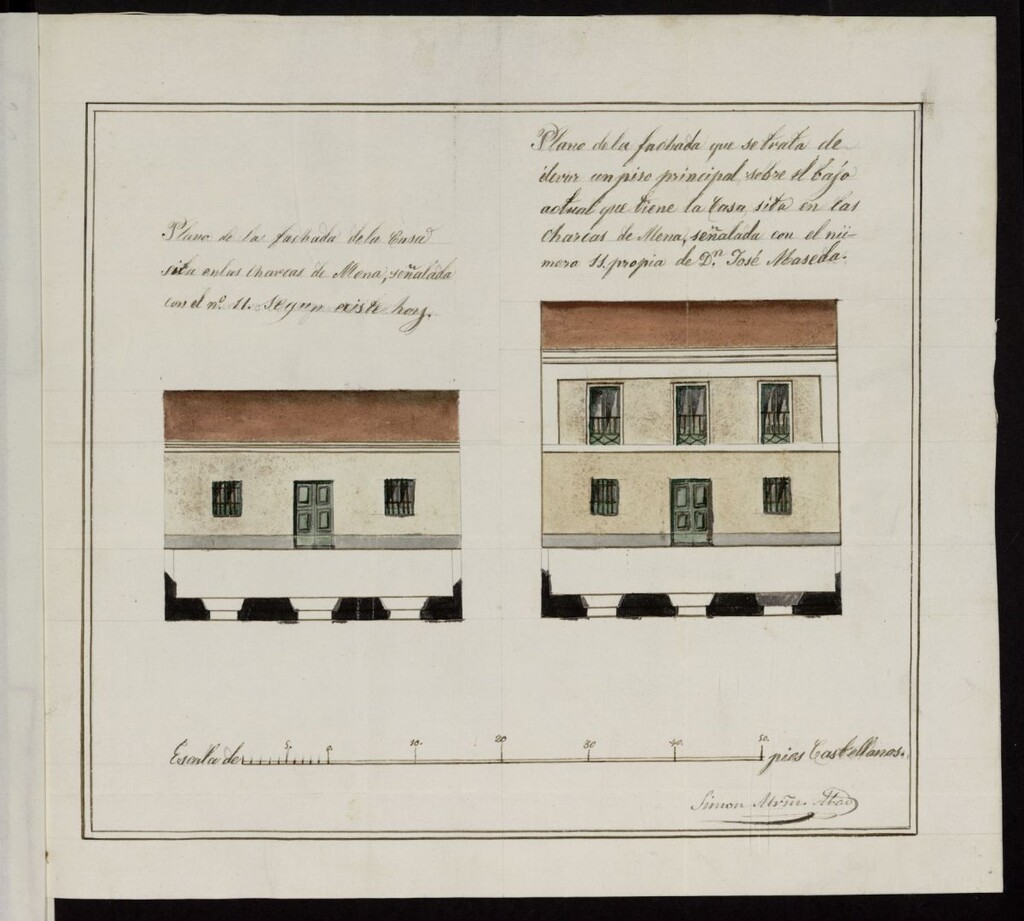 Plano de la fachada de la Casa
sita en las Charcas de Mena, señalada
con el nº. 11. segun existe hoy.
Plano de la fachada que se trata de
elevar un piso principal sobre el bajo
actual que tiene la Casa, sita en las
Charcas de Mena, señalada con el nú-
mero 11. propia de Dn. José Maseda.
Escala de 5. 0. 10. 20 30 40. 50. pies Castellanos.
Simon Abad